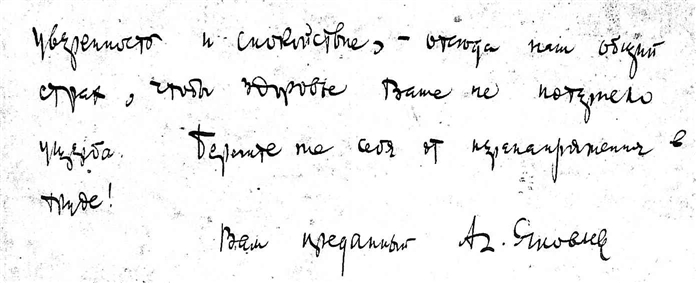 уверенность и спокойствие, – отсюда наш общий
страх, чтобы здоровье Ваше не потерпело
ущерба. Берегите же себя от перенапряжения в
труде!
Вам преданный Ал.